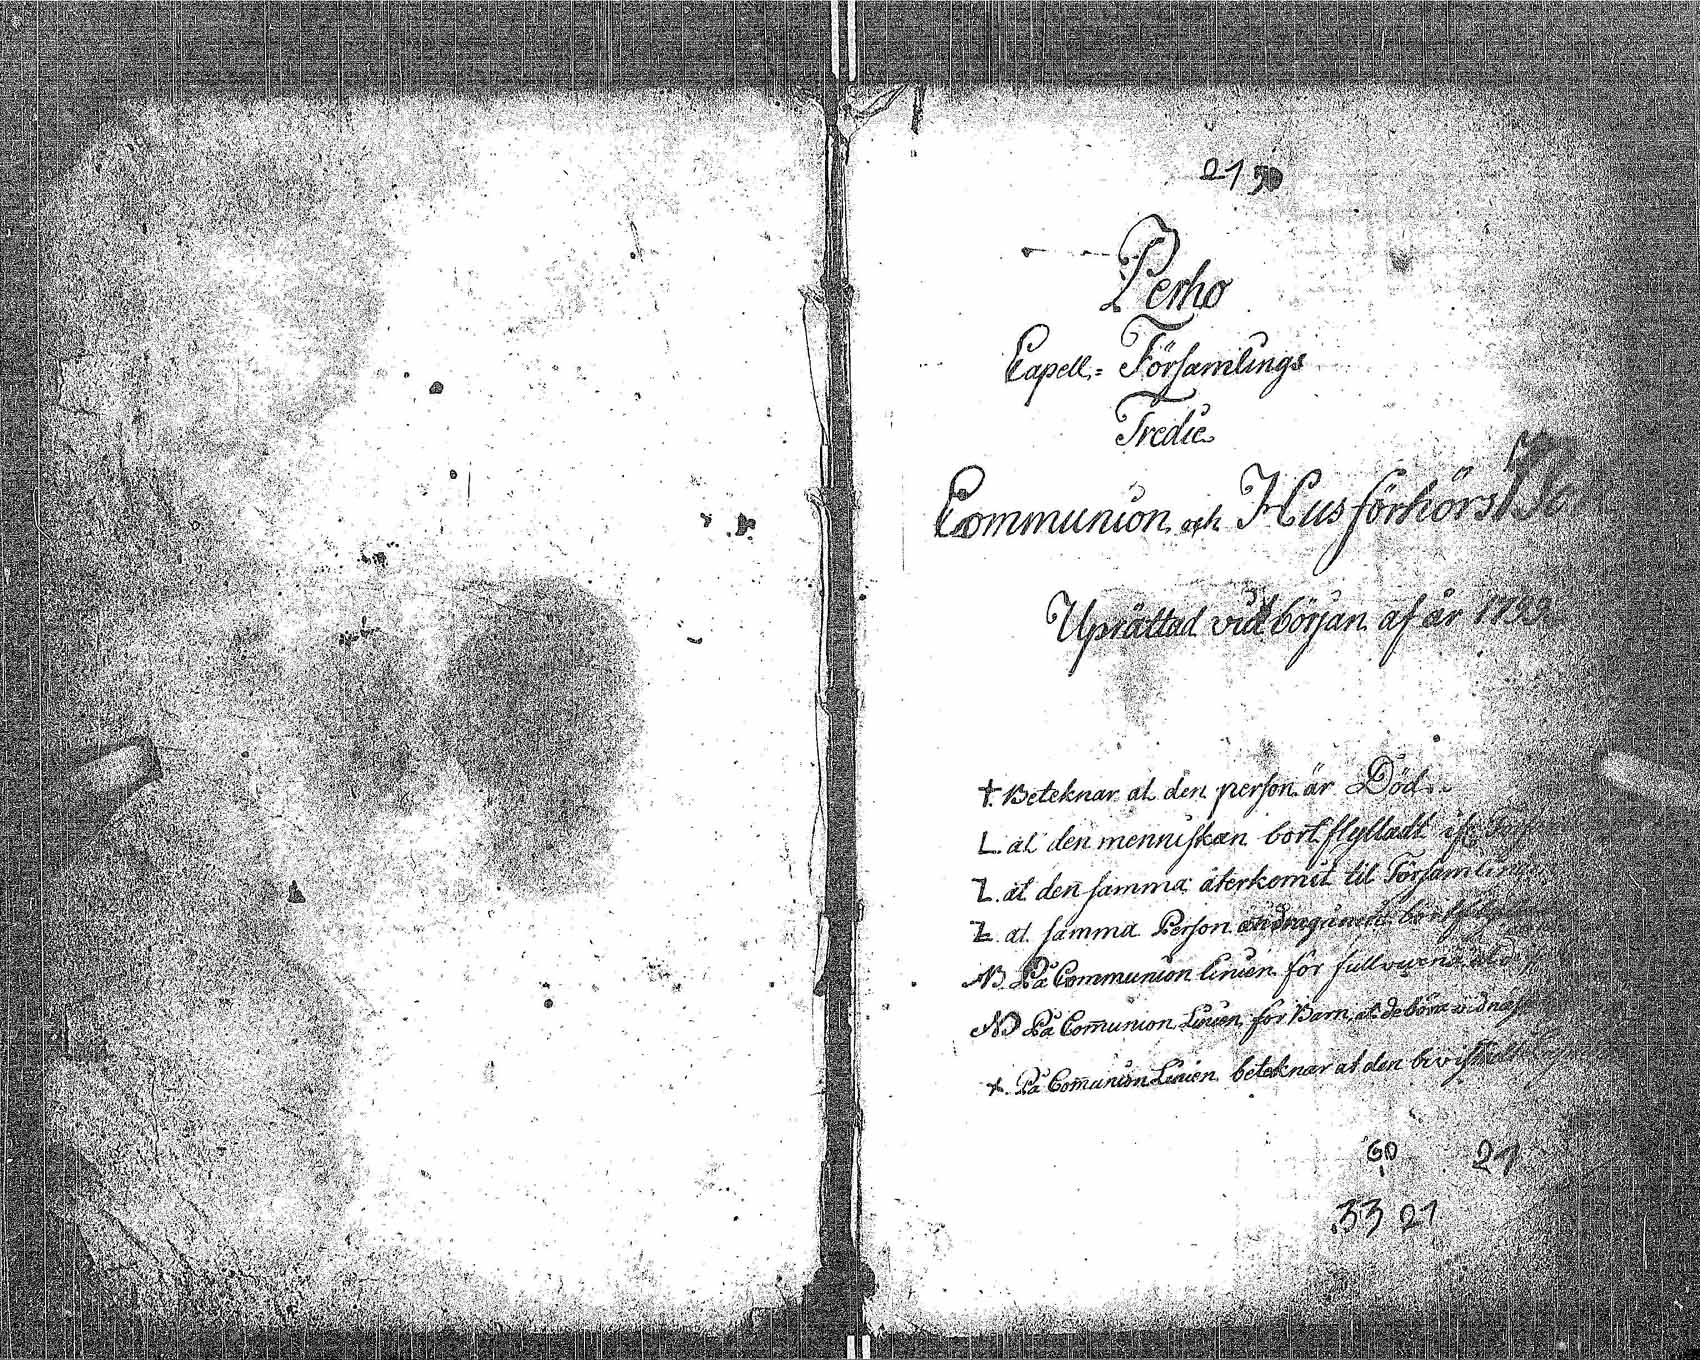 21 50
Perho
Capell-Församlings
Tredie
Communion och Husförhörs Bok
Uprättad vid början af år
† Beteknar at den person är Död.
L. at den menniskan bortflyttadt
Z. at den samma återkomit til Församlingen
Z. at samma Person bortflyttadt
NB. På Communion Linien för fullvuxna
NB På Com̅union Linien för Barn, at de böra
+. På Com̅union Linien beteknar at den
60 21
33 21